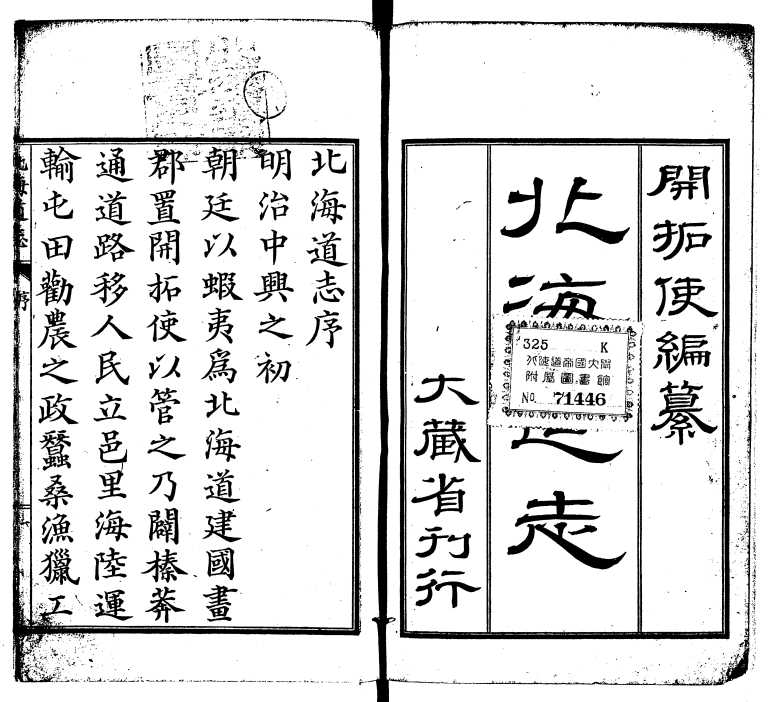 開拓使編纂
北海道志
大藏省刊行
325 K
北海道帝國大學
附屬圖書館
No. 71446
北海道志序
明治中興之初
朝廷以蝦夷爲北海道建國畫
郡置開拓使以管之乃闢榛莽
通道路移人民立邑里海陸運
輸屯田勸農之政蠶桑漁獵工
北海道志
序